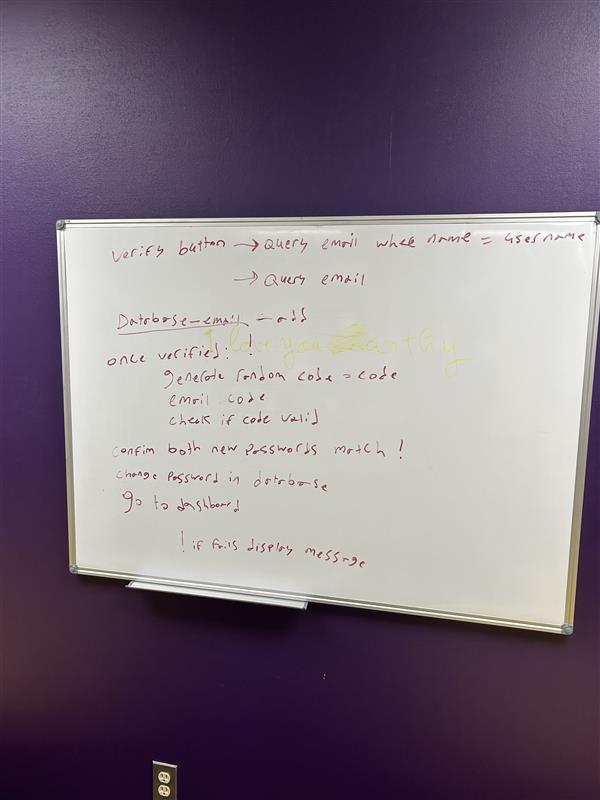 verify button → Query email whee name = username
→ Query email
Database-email - add
I love you earthy
once verified: !
generate random code = code
email code
check if code valid
confim both new passwords match !
change password in database
go to dashboard
! if fails display message